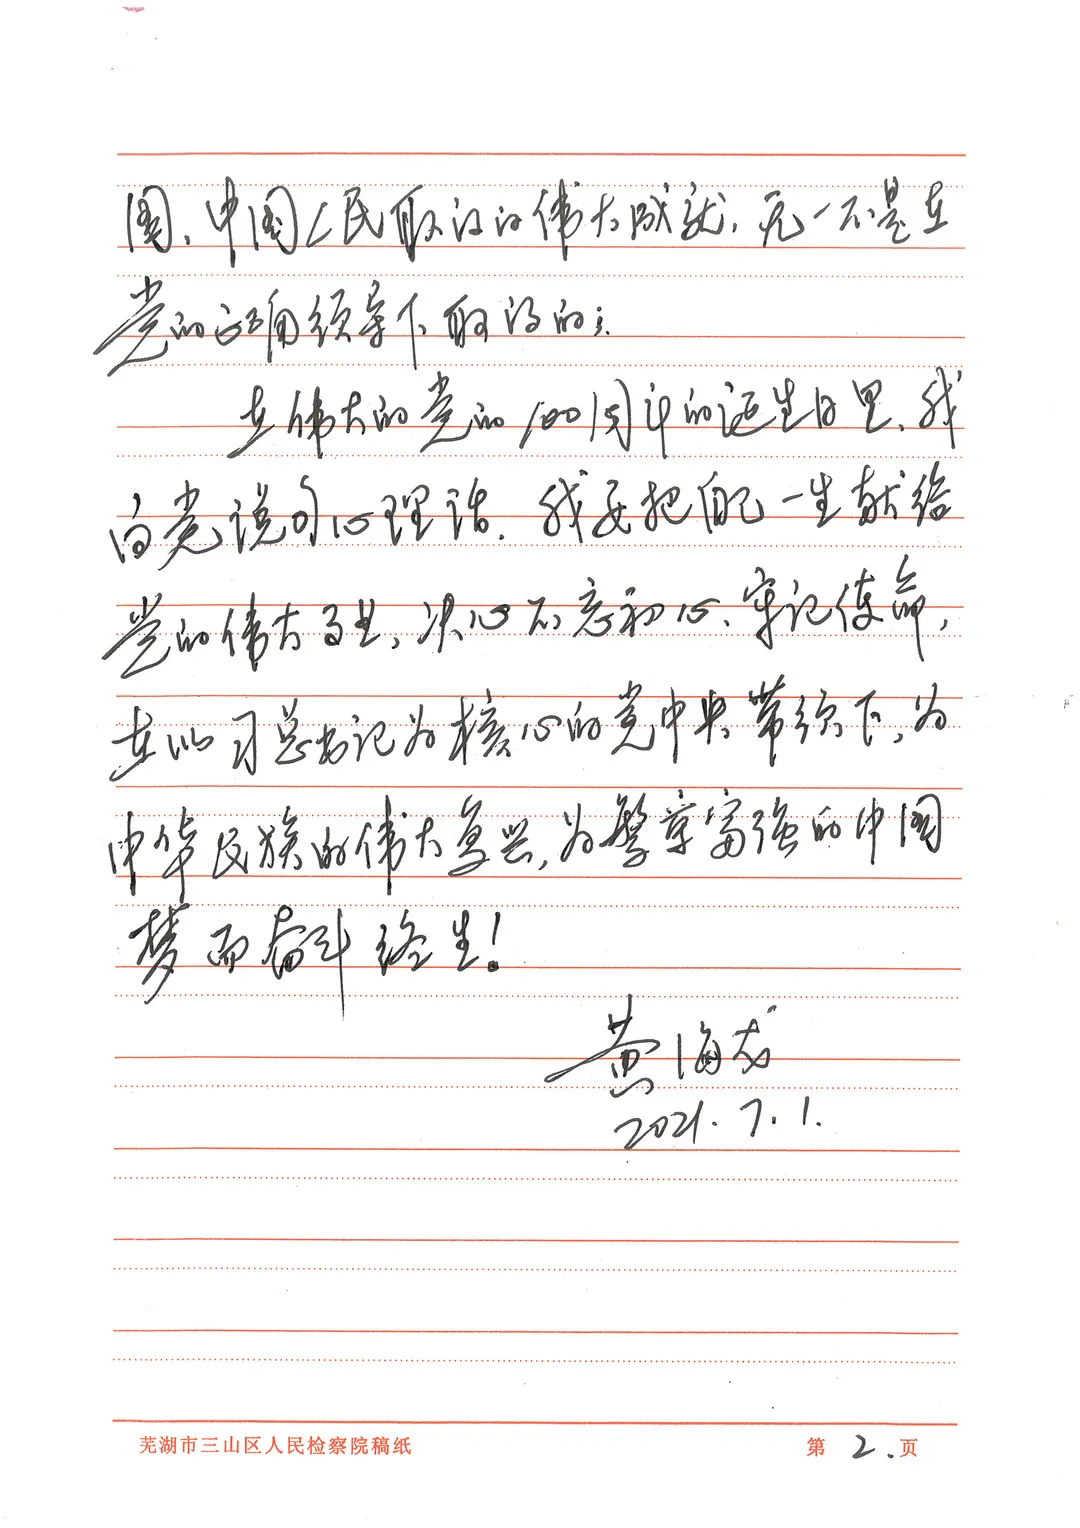 国、中国人民取得的伟大成就，无一不是在
党的正确领导下取得的；
在伟大的党的100周年的诞生日里，我
向党说句心理话，我要把自己一生献给
党的伟大事业，决心不忘初心、牢记使命，
在以习总书记为核心的党中央带领下，为
中华民族的伟大复兴，为繁荣富强的中国
梦而奋斗终生！
黄海龙
2021.7.1.
芜湖市三山区人民检察院稿纸
第2.页